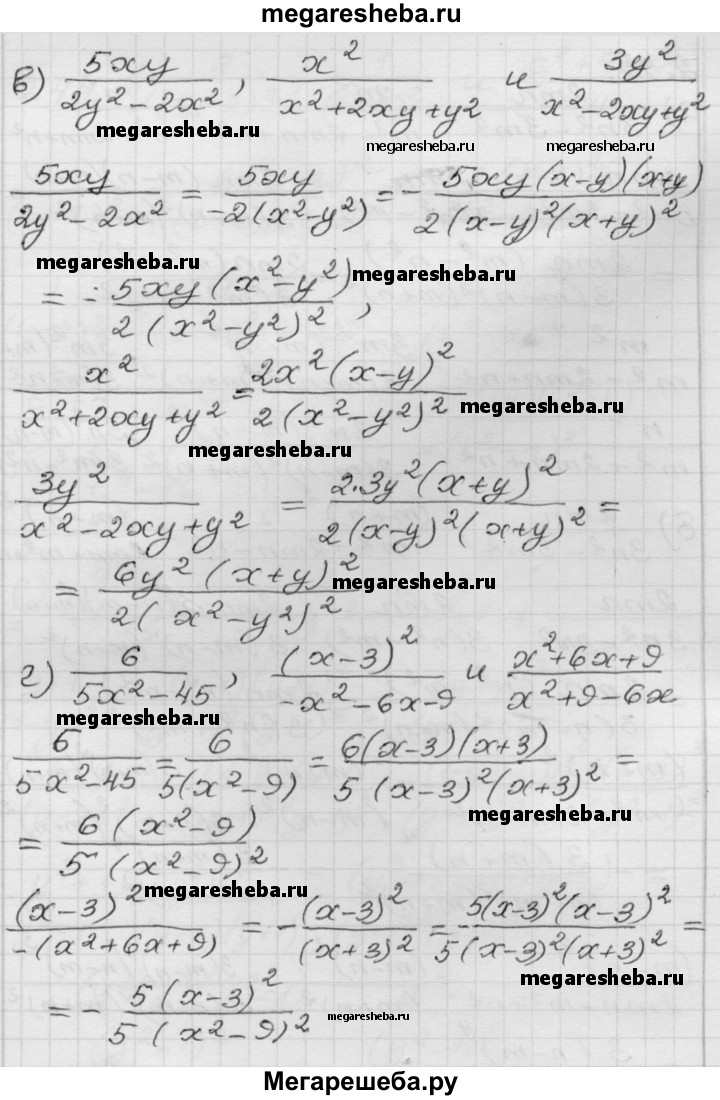 megaresheba.ru
в) 5xy/(2y² - 2x²), x²/(x² + 2xy + y²) и 3y²/(x² - 2xy + y²)
megaresheba.ru megaresheba.ru megaresheba.ru
5xy/(2y² - 2x²) = 5xy/(-2(x² - y²)) = - 5xy(x-y)(x+y)/(2(x-y)²(x+y)²)
megaresheba.ru megaresheba.ru
= - 5xy(x² - y²)/(2(x² - y²)²),
x²/(x² + 2xy + y²) = 2x²(x-y)²/(2(x² - y²)²)
megaresheba.ru
megaresheba.ru
3y²/(x² - 2xy + y²) = 2·3y²(x+y)²/(2(x-y)²(x+y)²) =
= 6y²(x+y)²/(2(x² - y²)²)
megaresheba.ru
г) 6/(5x² - 45), (x-3)²/(-x² - 6x - 9) и (x² + 6x + 9)/(x² + 9 - 6x)
megaresheba.ru
6/(5x² - 45) = 6/(5(x² - 9)) = 6(x-3)(x+3)/(5(x-3)²(x+3)²) =
megaresheba.ru
= 6(x² - 9)/(5(x² - 9)²)
megaresheba.ru
(x-3)²/(-(x² + 6x + 9)) = - (x-3)²/(x+3)² = - 5(x-3)²(x-3)²/(5(x-3)²(x+3)²) =
megaresheba.ru
= - 5(x-3)²/(5(x² - 9)²)
megaresheba.ru
Мегарешеба.ру